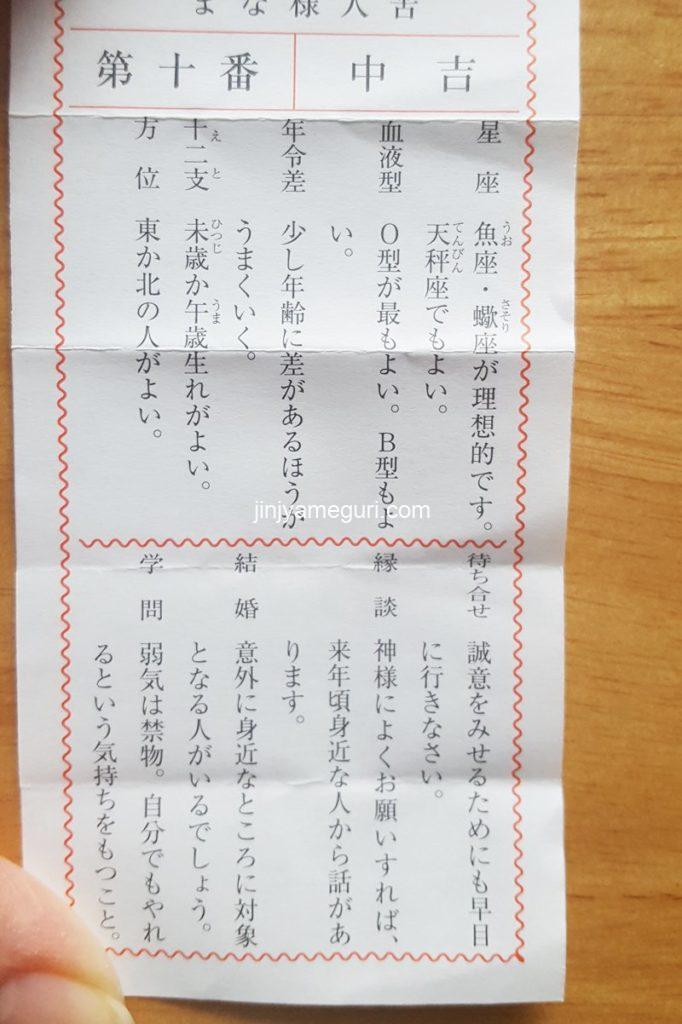 第十番 中吉
星座 魚座・蠍座が理想的です。
うお さそり
天秤座でもよい。
てんびん
血液型 O型が最もよい。B型もよ
い。
年令差 少し年齢に差があるほうが
うまくいく。
十二支 未歳か午歳生れがよい。
えと ひつじ うま
方位 東か北の人がよい。
jinjyameguri.com
待ち合せ 誠意をみせるためにも早目
に行きなさい。
縁談 神様によくお願いすれば、
来年頃身近な人から話があ
ります。
結婚 意外に身近なところに対象
となる人がいるでしょう。
学問 弱気は禁物。自分でもやれ
るという気持ちをもつこと。